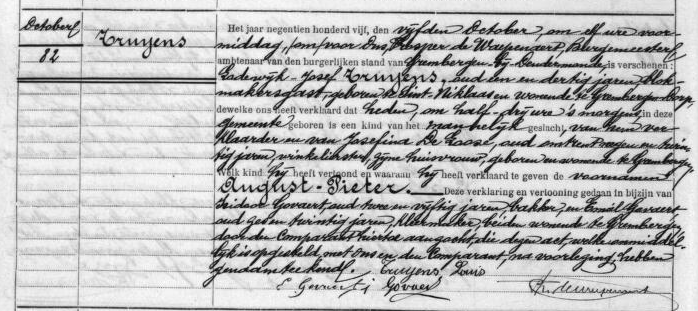 October
82
Truyens
Het jaar negentien honderd vijf, den vijfden October, om elf ure voor-
middag, om voor Ons, Prosper de Waepenaert, Burgemeester
ambtenaar van den burgerlijken stand van Grembergen bij Dendermonde, is verschenen:
Lodewijk-Josef Truyens, oud een en dertig jaren, blok-
makersgast, geboren te Sint-Niklaas en wonende te Grembergen-Dorp,
dewelke ons heeft verklaard dat heden, om half-drij ure 's morgens, in deze
gemeente geboren is een kind van het mannelijk geslacht, van hem ver-
klaarder en van Josefina De Loose, oud een en twin-
tig jaren, winkelierster, zijne huisvrouw, geboren en wonende te Grembergen,
Welk kind hij heeft vertoond en waaraan hij heeft verklaard te geven de voornamen
August-Pieter. Deze verklaring en vertooning gedaan in bijzijn van
Isidoor Govaert, oud twee en vijftig jaren, bakker, en Emiel Govaert
oud zeven twintig jaren, kleermaker, beiden wonende te Grembergen,
door den Comparant hiertoe aangezocht, die dezen act, welke onmiddel-
lijk is opgesteld, met Ons en den Comparant, na voorlezing, hebben
geteekend. Truyens Louis
E Govaert i Govaert